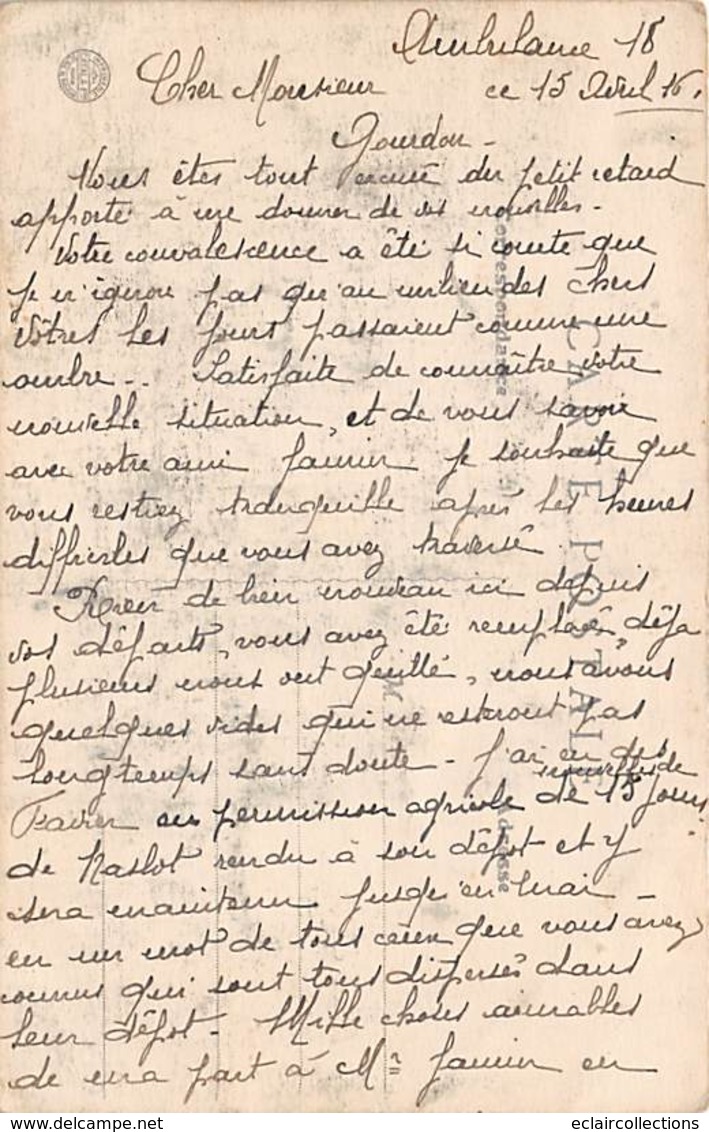 Ambulance 18
Cher Monsieur ce 15 Avril 16.
Jourdon -
Vous êtes tout excusé du petit retard
apporté à me donner de vos nouvelles -
Votre convalescence a été si courte que
je n'ignore pas qu'au milieu des chers
vôtres les jours passaient comme une
ombre.. Satisfaite de connaître votre
nouvelle situation, et de vous savoir
avec votre ami je souhaite que
vous restiez tranquille après les heures
difficiles que vous avez traversé.
Rien de bien nouveau ici depuis
vos départs, vous avez été remplacé, déjà
plusieurs nous ont quitté, nous avons
quelques vides qui ne resteront pas
longtemps sans doute - J'ai eu des
nouvelles de
en permission agricole de 15 jours
de rendu à son dépôt et y
sera maintenu jusqu'en Mai -
en un mot de tous ceux que vous avez
connus qui sont tous dispersés dans
leur dépôt - Mille choses aimables
de ma part à Mr en
CARTE POSTALE
Correspondance
Adresse
eclaircollections.com